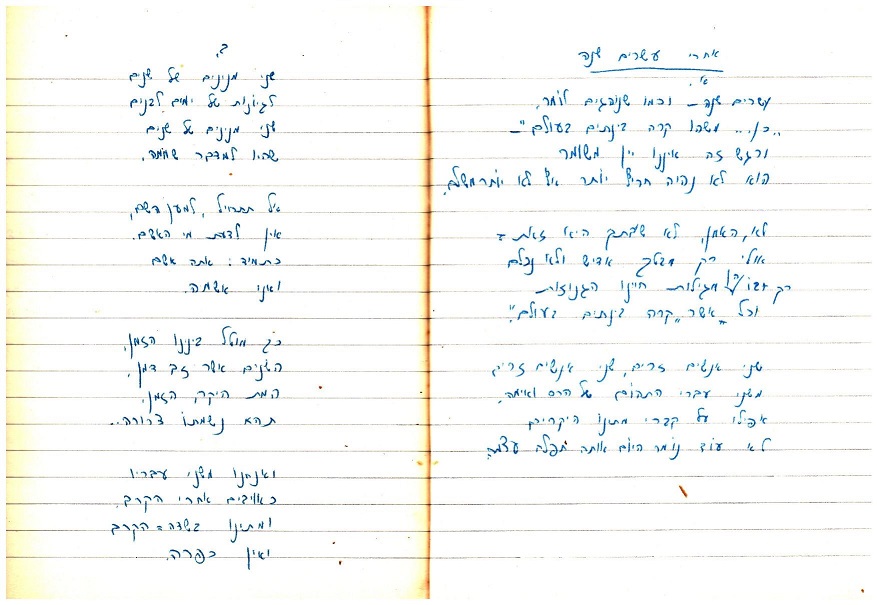 אחרי עשרים שנה
א.
עשרים שנה – וכמו שנוהגים לומר,
"כן... משהו קרה בינתים בעולם" –
ורגש זה איננו יין משומר
הוא לא נהיה חריף יותר אף לא יותר מושלם.
לא, האמן, לא שנתך היא זאת =
אולי רק מבטך אדיש ולא נכלם
רק מגילות חיינו הגנוזות
וכל "אשר קרה בינתים בעולם".
שני אנשים זרים, שני אנשים זרים
משני עברי התהום של הרס ואימה,
אפילו על קברי מתינו היקרים
לא עוד נומר היום אותה תפלה עצמה.
ב.
שני מנינים של שנים
לגיונות של ימים לבנים
שני מנינים של שנים
שהיו למדבר שממה.
אל תתחיל, למען השם,
אין לדעת מי האשם.
כתמיד: אתה אשם
ואני אשמה.
כך מוטל בינינו הזמן,
השנים אשר זב דמן,
המת היקר, הזמן,
תהא נשמתו צרורה..
ואנחנו משני עבריו
כאויבים אחרי הקרב,
ומתינו בשדה = הקרב
ואין כפרה.